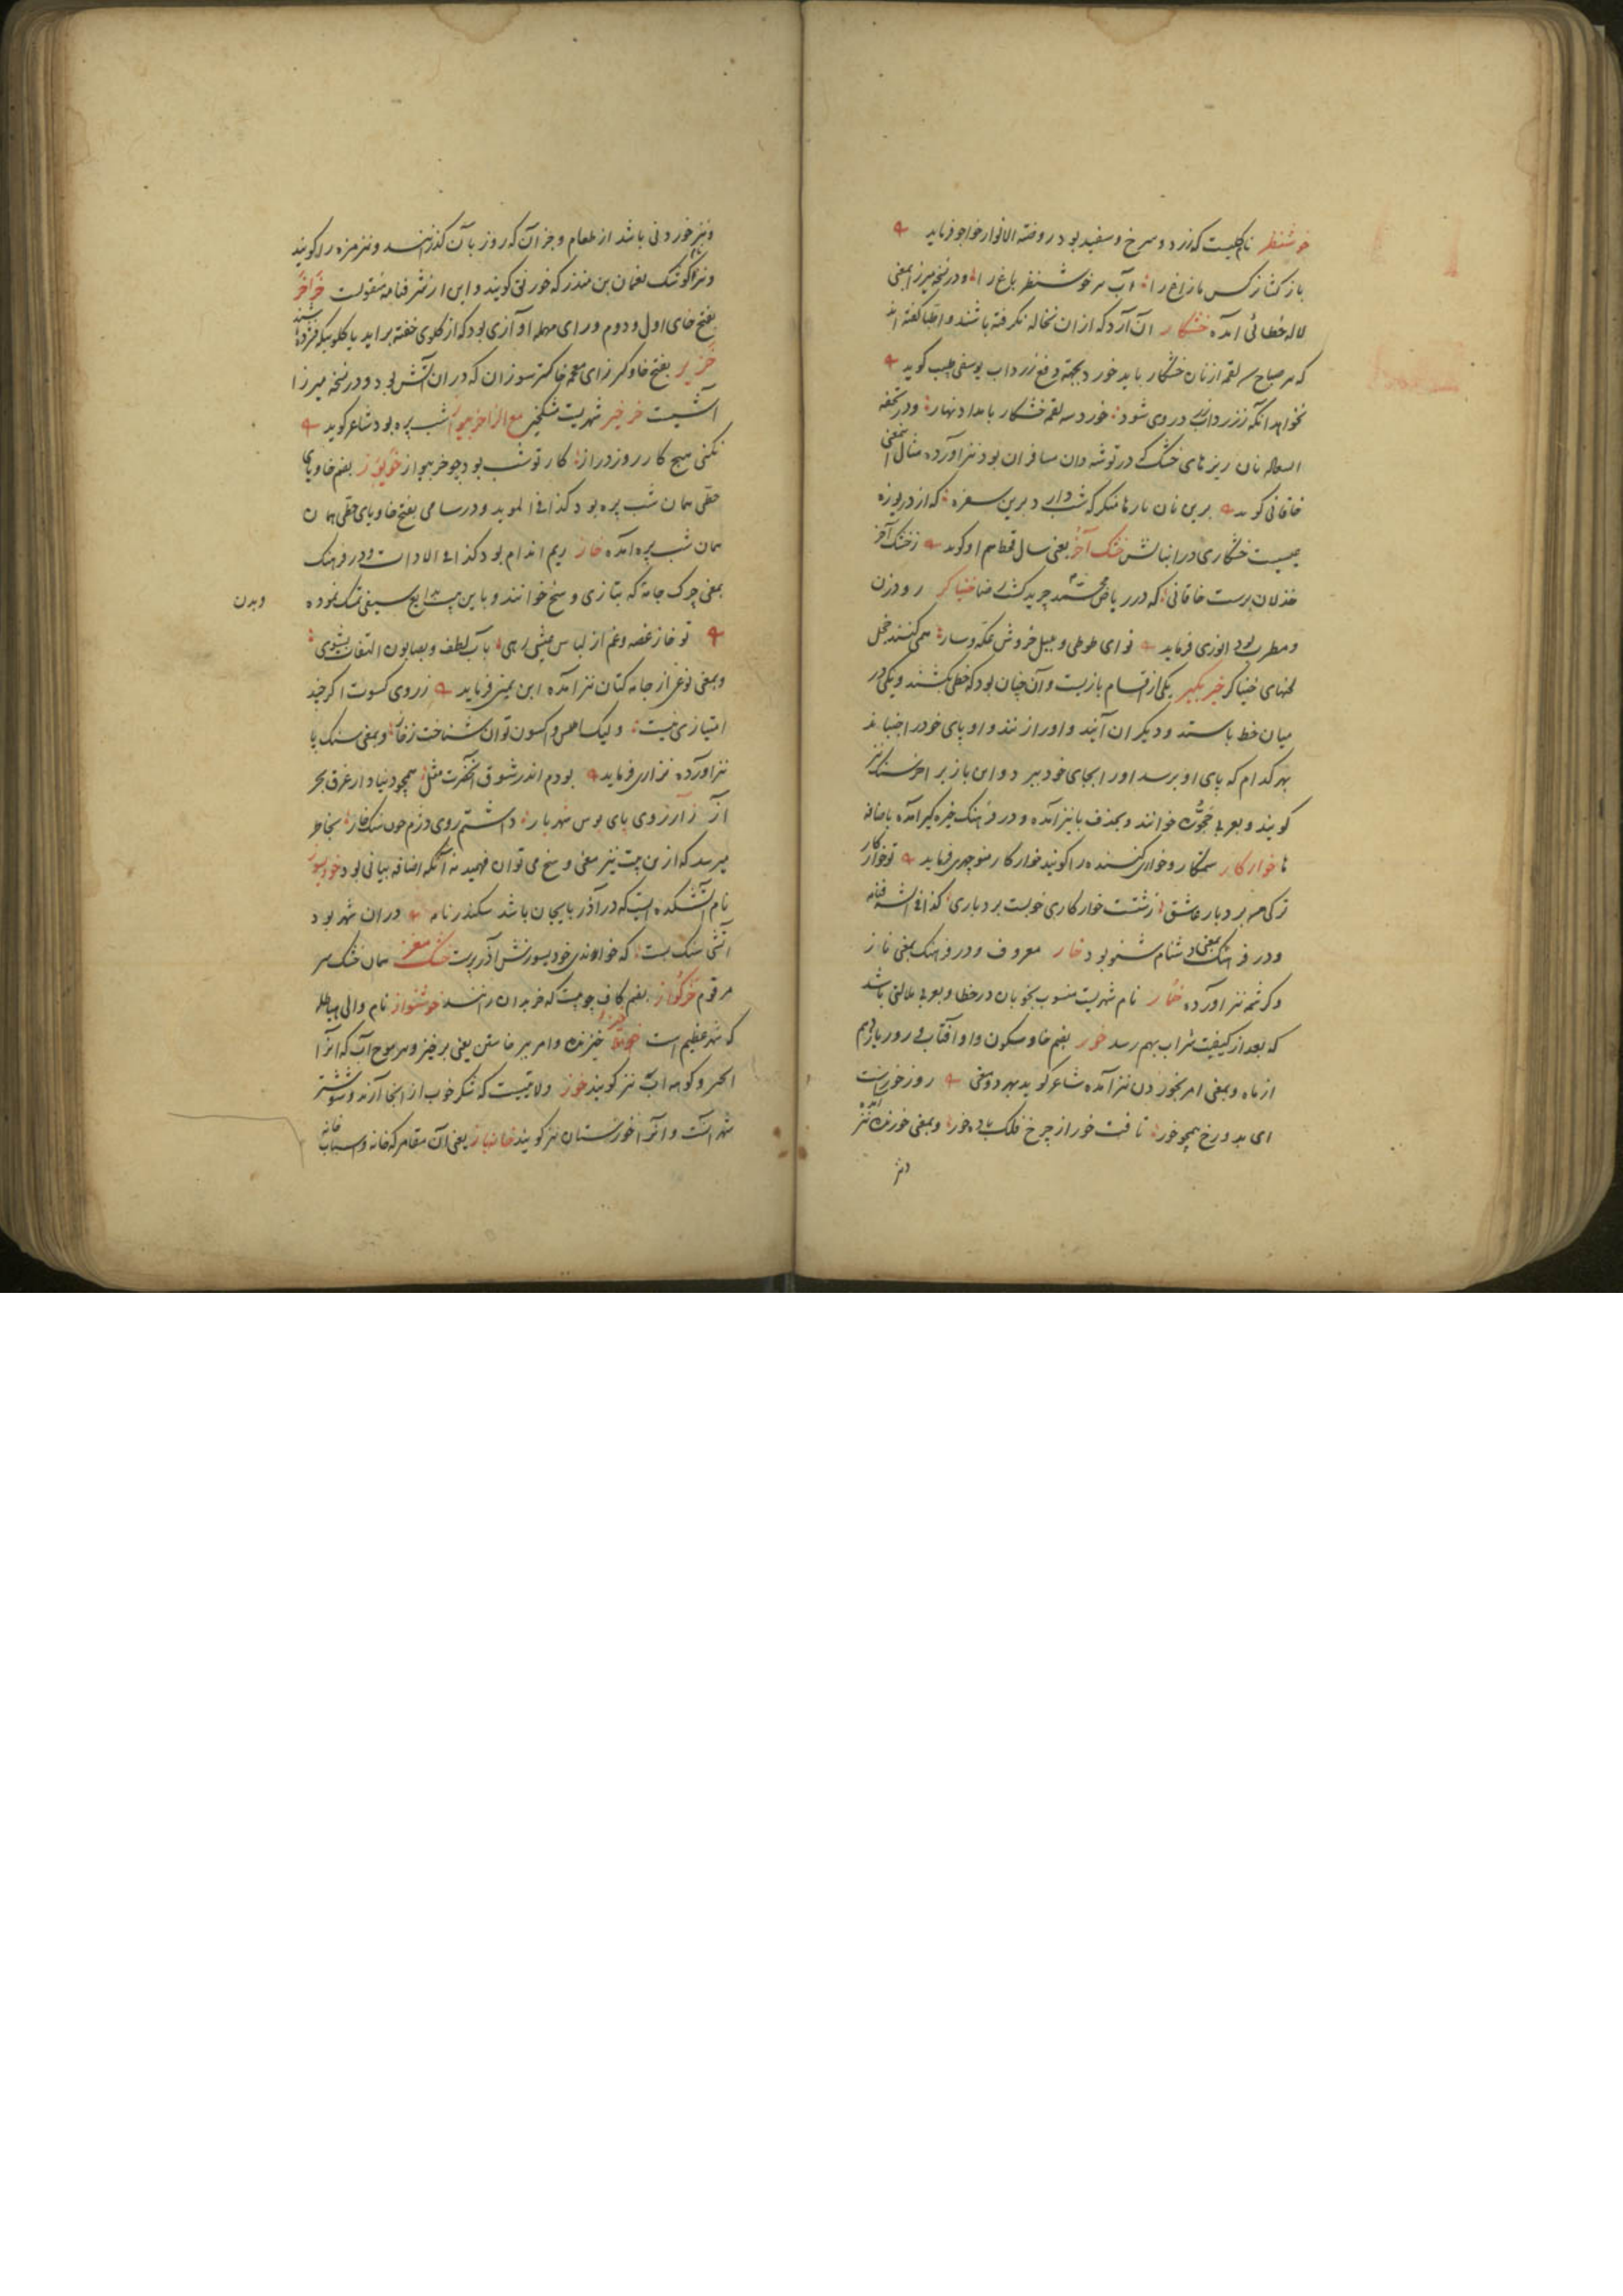 خوشنظر نام گلیست که زرد و سرخ و سفید بود در روضة الانوار خواجو فرماید
باز کشا نرکس ما زاغ را آب خوشنظر باغ را و در نسخه میرزا بمعنی
لاله خطائی آمده خشکار آن آرد که از ان نخاله نکرفته باشند و اطبا گفته اند
که هر صباح سه لقمه از نان خشکار باید خورد بجهة دفع زرداب یوسفی طبیب کوید
نخواهد آنکه زرداب در وی شود خورد سه لقمه خشکار بامداد نهار و در تحفه
السعاده نان ریزهای خشک که در توشه دان مسافران بود نیز آورده مثال معنی
خاقانی کوید برین نان بارها منکر که شب دارد برین سفره که از دریوزه
عیسیست خشکاری در انبانش خشک آخر یعنی سال قحط هم او کوید ز خشک آخر
خذلان برست خاقانی که در ریاض محمد چرید کشت رضا خنیاکر رود زن
و مطرب بود انوری فرماید نوای طوطی و بلبل خروش عکه و سار همی کنند خجل
لحنهای خنیاکر خیز بکیر یکی از اقسام بازیست و آن چنان بود که خطی بکشند و یکی در
میان خط باستد و دیگران آیند و او را زنند و او پای خود را جنباند
بهر کدام که پای او برسد او را بجای خود برد و این باز را خر سنک نیز
کویند و بعربی حجوره خوانند و بحذف با نیز آمده و در فرهنک خیره کیر آمده باضافه
ها خوارکار ستمکار و خواری کننده را کویند خوارکار منوچهری فرماید تو خوارکار
ترکی من بردبار عاشق زشتست خوارکاری خوبست بردباری کذا فی الشرفنامه
و در فرهنک بمعنی دشنام شنو بود خار معروف و در فرهنک بمعنی ناز
و کرشمه نیز آورده خمار نام شهریست منسوب بخوبان در خطا و بعربی ملالتی باشد
که بعد از کیفیت شراب بهم رسد خور بضم خا و سکون واو آفتاب و روز یازدهم
از ماه و بمعنی امر بخوردن نیز آمده شاعر کوید بهر دو معنی روز خورست
ای بدو رخ همچو خور تافت خور از چرخ فلک باده خور و بمعنی خورنده نیز آمده
و نیز
و نیز خوردنی باشد از طعام و جز آن که روز بآن کذرانند و نیز مزه را کویند
و نیز کوشک نعمان بن منذر که خورنق کویند و این از شرفنامه منقولست خراخر
بفتح خای اول و دوم و رای مهمله آوازی بود که از کلوی خفته براید یا کلوییکه فشرده باشند
خزیر بفتح خا و کسر زای معجمه خاکستر سوزان که در ان آتش بود و در نسخه میرزا
آتشیست خرخیز شهریست مشکخیز مع الزا خربیواز شب پره بود شاعر کوید
نکنی هیچ کار روز دراز کار تو شب بود چو خربیواز خویوز بضم خا و یای
حطی همان شب پره بود کذا فی المؤید و در سامی بفتح خا و یای حطی همان
همان شب پره آمده خاز ریم اندام بود کذا فی الادات و در فرهنک
بمعنی چرک جامه که بتازی وسخ خوانند و باین بیت بدایع سیفی تمسک نموده
و بدن
تو خاز غصه و غم از لباس عیش رهی بآب لطف و بصابون التفات بشوی
و بمعنی نوعی از جامه کتان نیز آمده ابن یمین فرماید ز روی کسوت اکرچند
امتیازی نیست ولیک اطلس و اکسون توان شناخت ز خاز و بمعنی سنک پا
نیز آورده نزاری فرماید بودم اندر شوق آنحضرت مثل همچو دنیادار غرق بحر
آز ز آرزوی پای بوس شهریار داشتم روی دژم چون سنک خاز بخاطر
میرسد که ازین بیت نیز معنی وسخ می توان فهمید نه آنکه اضافه بیانی بود خودسوز
نام آتشکده ایست که در آذربایجان باشد سکندرنامه در ان شهر بود
آتشی سنک بست که خواندی خودسوزش آذرپرست خشک مغز همان خشک سر
مرقوم خرکواز بضم کاف چوبیست که خر بدان رانند خوشنواز نام والی هیاطله
که شهر عظیم است خیز خیزنده و امر بر خاستن یعنی برخیز و موج آب که آنرا
کوهه آب نیز کویند خوز ولایتیست که شکر خوب از انجا آرند و شوشتر
شهر آنست و آنرا خوزستان نیز کویند خان باز یعنی آن مقامر که خانه و اسباب خانه